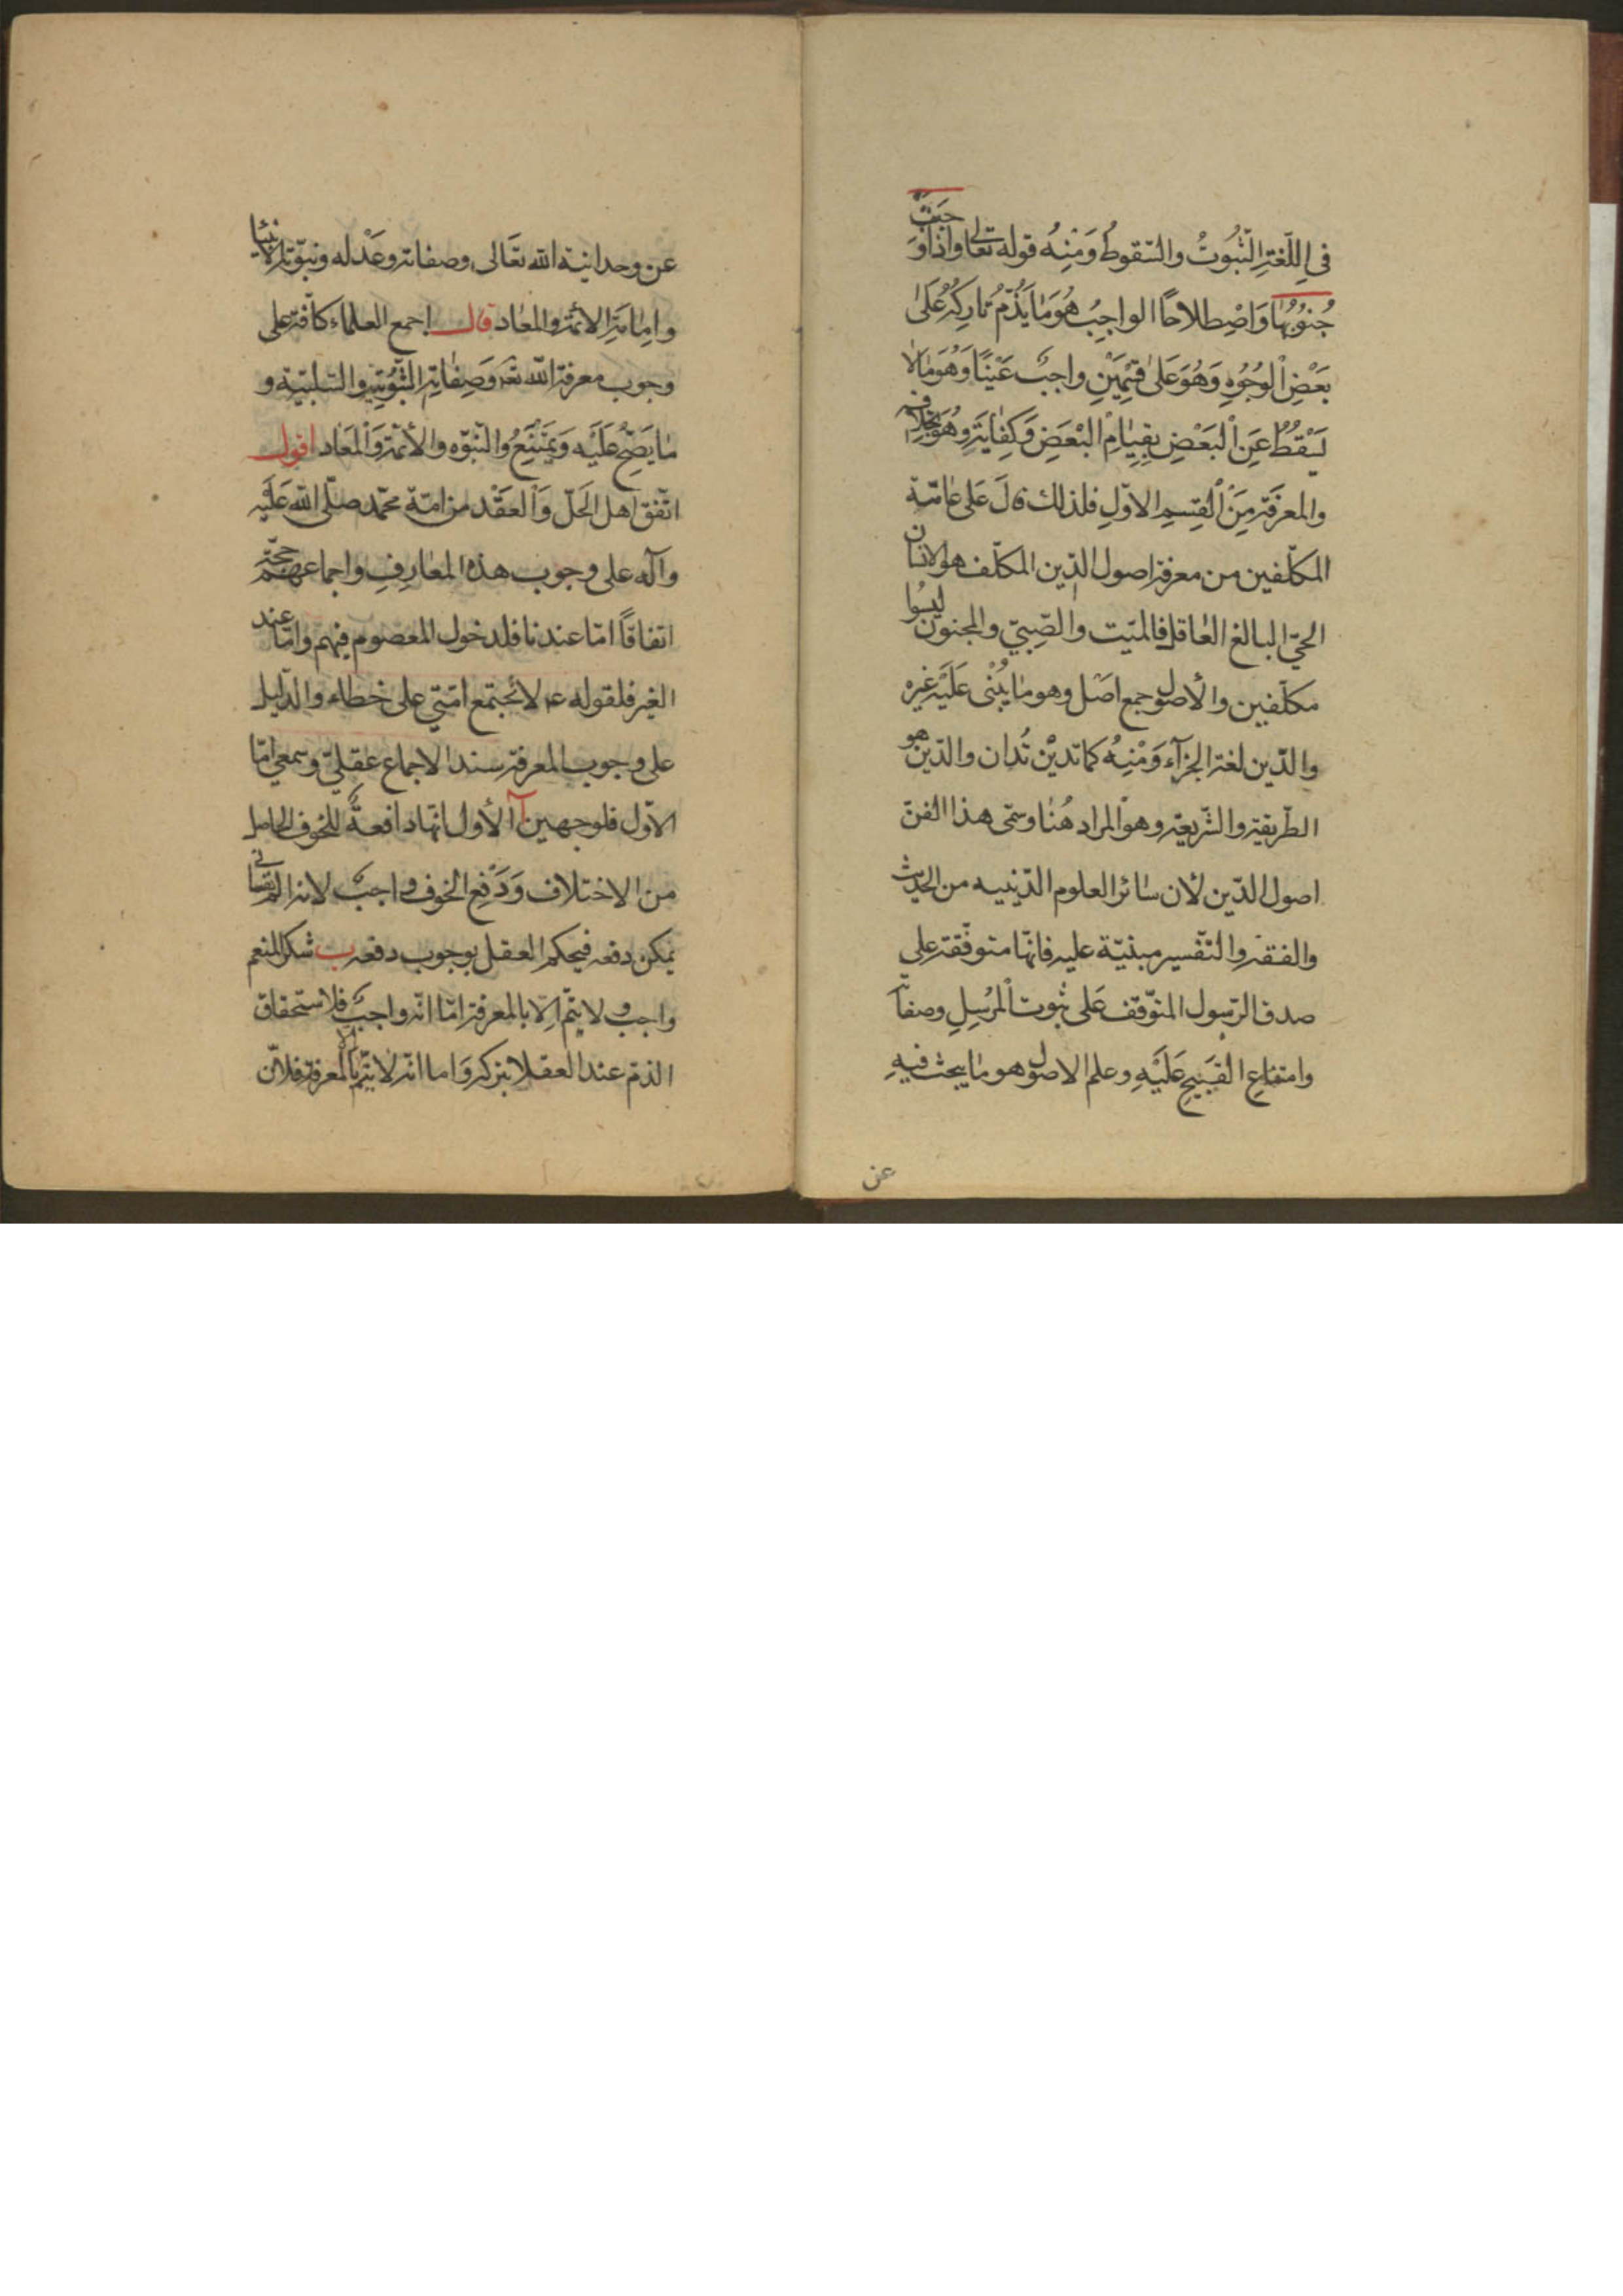 في اللّغة الثّبُوتُ والسّقوطُ وَمْنِهُ قوله تعالى واذا وَجَبَتْ
جُنُوُبُهٰا وَاصْطِلاحًا الواجِبُ هُوَ مٰا يُذّمُ تٰارِكُهُ عَلىٰ
بَعْضِ اْلوُجُوُهِ وَهُوَ عَلىٰ قِسْمَيْنِ واجبٌ عَيْنًا وَهُوَ مٰا لاٰ
يَسْقُطُ عَنِ اْلبَعْضِ بِقِيٰامِ الْبَعَضِ وَكِفٰايَةً وهُوَ بخِلٰافِه
والمعرفَة مِنَ اْلقِسمِ الاوّلِ فلذلك قٰالَ عَلى عٰامّة
المكلّفين من معرفة اصول الدّين المكلّف هو الانسان
الحيّ البالغ العٰاقل فالميّت والصِّبيّ والمجنون ليسُوا
مكلّفين والأصول جمع اصَل وهو مٰا يُبْنٰى عَلَيْه غيره
والدّين لغة الجزآء وَمْنِهُ كمٰا تديْن تُدان والدّين هو
الطّريقة والشّريعة وهو المراد هُنٰا وسمّى هذا الفنّ
اصول الدّين لأن سٰائر العلوم الدّينيه من الحديث
والفقه والتّفسير مبنيّة عليه فانّها متوقّفة على
صدق الرّسول المتوّقف عَلى ثبوت اْلمرُسِلِ وصفاته
وامتناعِ القَبيِحِ عَلَيْهِ وعلم الاصول هو مٰا يبحث فيهِ
عن
عن وحدانية الله تعَالى وصفاته وعَدْله ونبوّة الانبيٰا
وامِامَة الائمّة والمعٰاد قال اجمع العلماء كافّة على
وجوب معرفة الله تع وَصِفٰاتِه الثّبُوُتِيه والسّلبيّة و
مٰا يَصَحُّ عَلَيْه وَيَمْتَنِعُ والنّبوّه والأئمّة وَاْلمعَاد اقول
اتّفق اهل الحَلّ وَالْعَقْد من امّة محمّد صلّى الله عَلَيْه
وآله على وجوب هذه المعٰارِفِ واجماعهم حجّة
اتفاقًا امّا عندنا فلدخول المعصوم فيهم وامّا عند
الغير فلقوله ع لا تجتمع امّتي على خطاء والدّليل
على وجوب المعرفة سند الاجماع عقليّ وسمعي امّا
الاوّل فلوجهين آ الأول انّها دافعةٌ للخوف الحاصل
من الاختلاف وَدَفع الخوف واجبٌ لانه الم نفسٰاني
يمكن دفعه فيحكم العقل بوجوب دفعه ب شكر المنعم
واجب ولا يتّم الّا بالمعرفة امّا انّه واجب فلاستحقاق
الذمّ عند العقلا بتركه وَاما انّه لا يتّم الّا بالمعرفة فلانّ